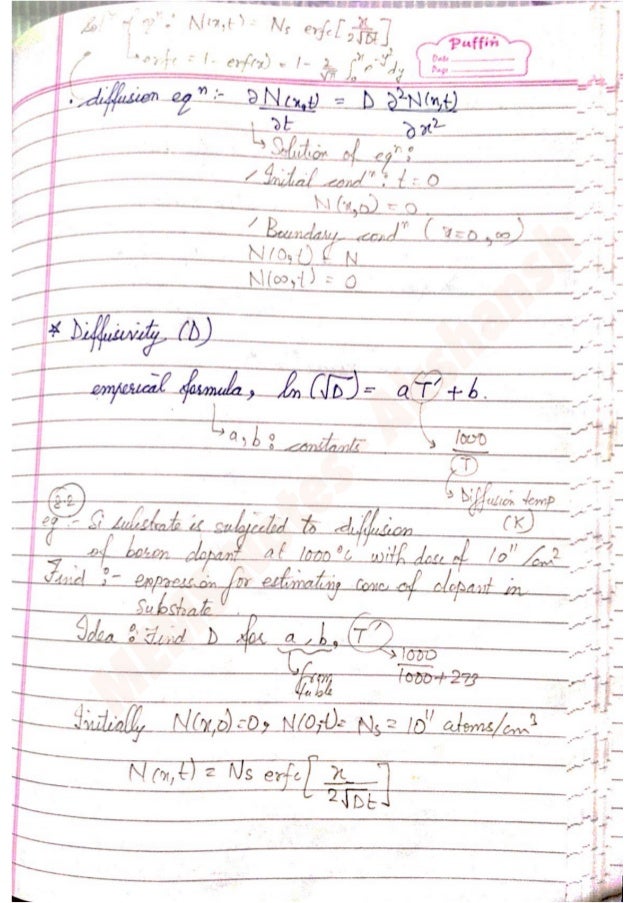 Solⁿ of eqⁿ: N(x,t) = Ns erfc[x/2√Dt]
erfc = 1 - erf(x) = 1 - 2/√π ∫₀ˣ e^-y² dy
Puffin
Date
Page
• diffusion eqⁿ:- ∂N(x,t)/∂t = D ∂²N(x,t)/∂x²
↳ Solution of eqⁿ:
/ Initial condⁿ: t = 0
N(x,0) = 0
/ Boundary condⁿ (x=0, ∞)
N(0,t) = N
N(∞,t) = 0
* Diffusivity (D)
emperical formula, ln (√D) = aT' + b.
↳ a, b: constants
1000/T
↳ Diffusion temp
(K)
8.2
eg:- Si substrate is subjected to diffusion
of boron dopant at 1000°C with dose of 10¹¹/cm²
Find :- expression for estimating conc of dopant in
substrate
Idea : Find D for a, b, T' → 1000/1000+273
from
table
Initially N(x,0)=0, N(0,t)= Ns = 10¹¹ atoms/cm³
N(x,t) = Ns erfc[x/2√Dt]